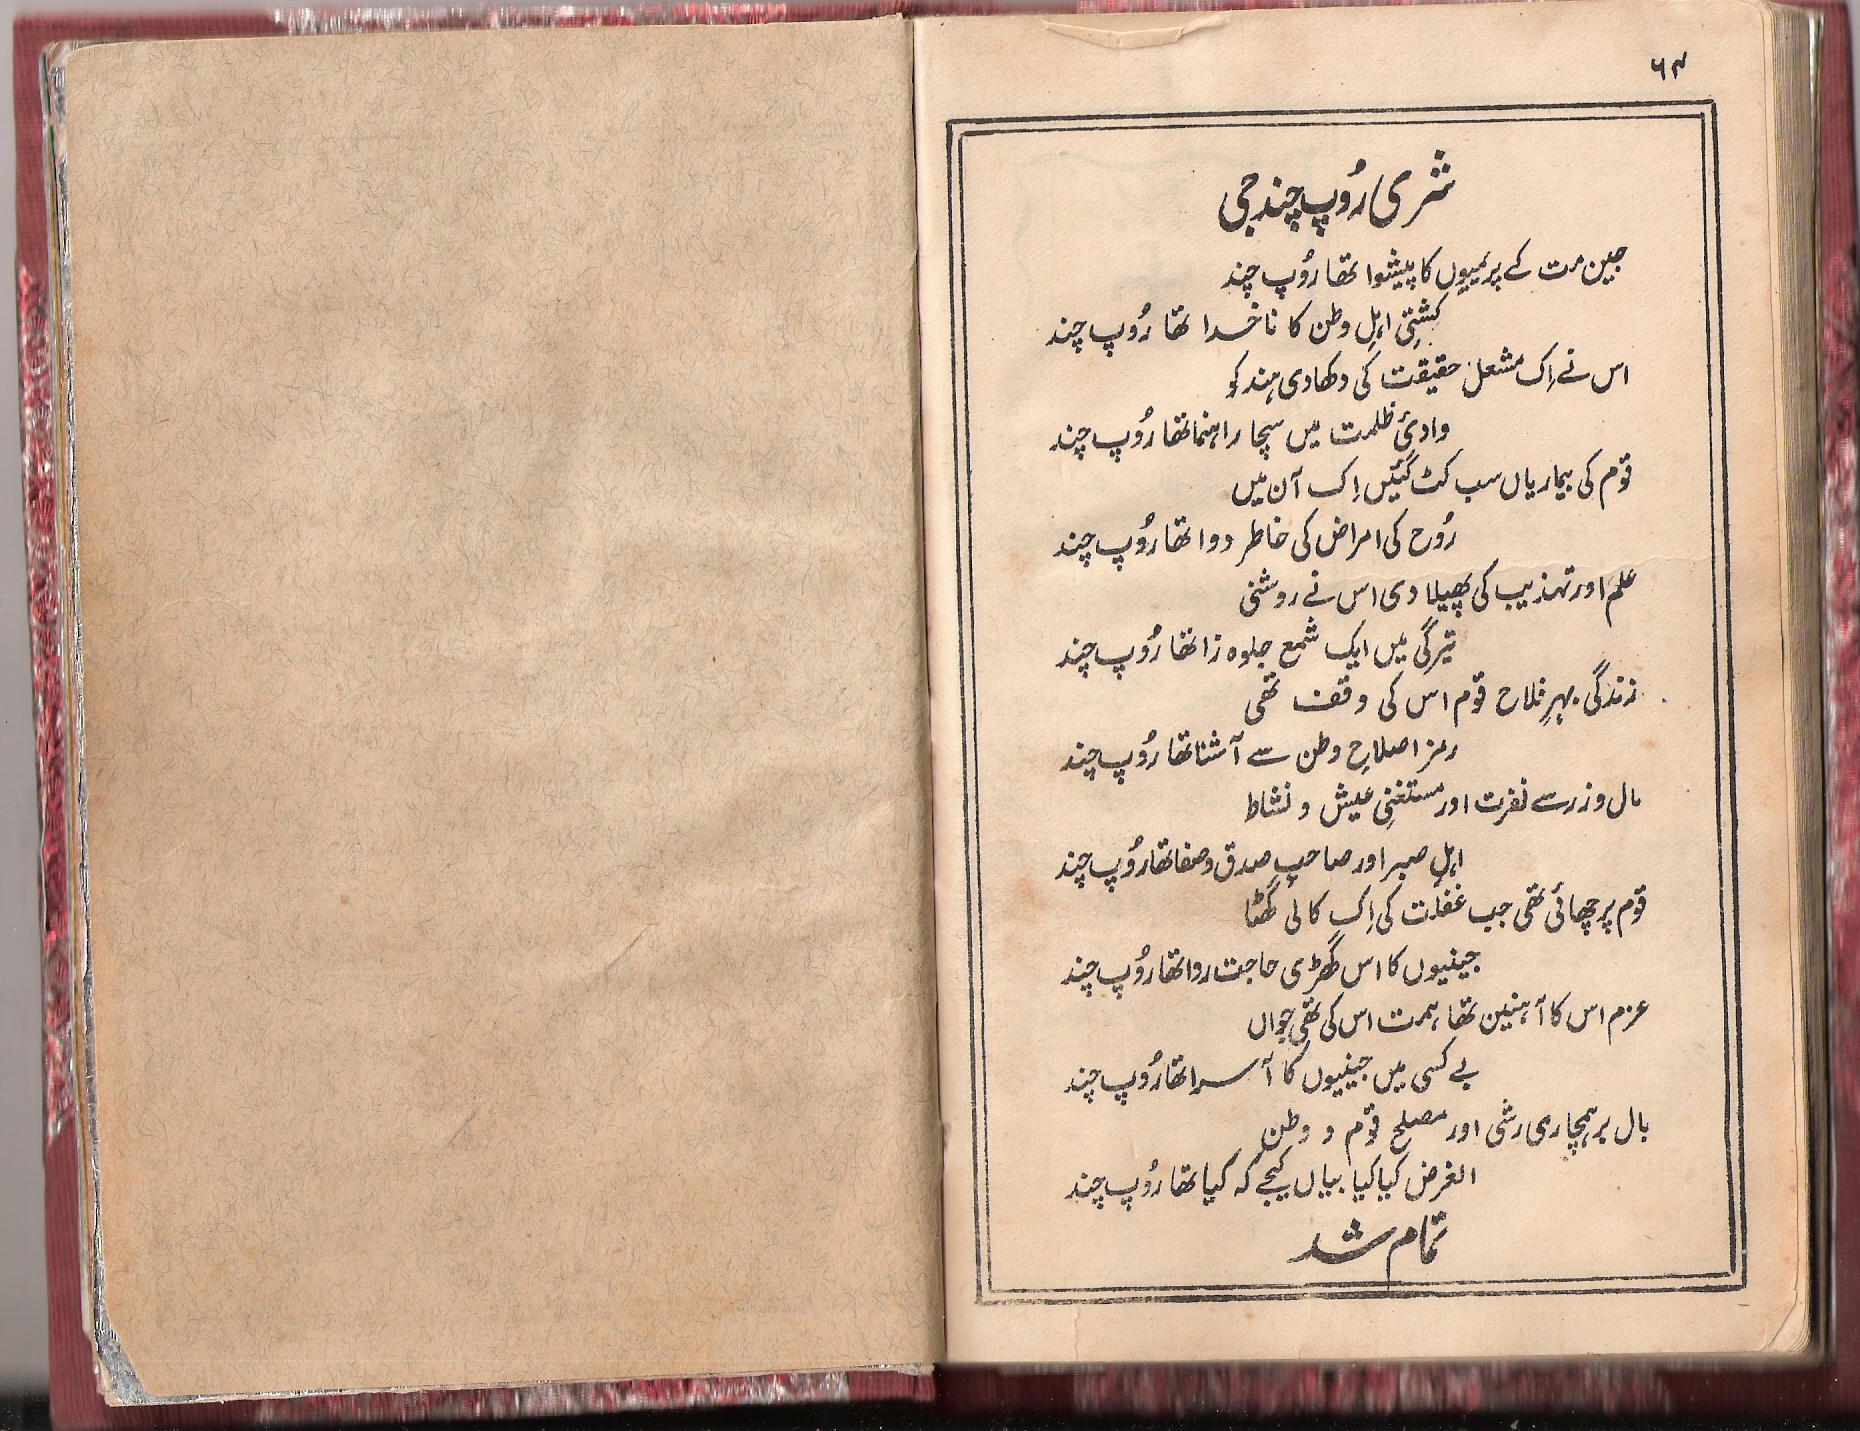 ۶۴
شری رُوپ چند جی
جین مت کے پریمیوں کا پیشوا تھا رُوپ چند
کشتیِ اہلِ وطن کا ناخدا تھا رُوپ چند
اس نے اِک مشعل حقیقت کی دکھا دی ہند کو
وادیٔ ظلمت میں سچا راہنما تھا رُوپ چند
قوم کی بیماریاں سب کٹ گئیں اِک آن میں
رُوح کی امراض کی خاطر دوا تھا رُوپ چند
علم اور تہذیب کی پھیلا دی اس نے روشنی
تیرگی میں ایک شمع جلوہ زا تھا رُوپ چند
زندگی بہرِ فلاح قوم اس کی وقف تھی
رمز اصلاحِ وطن سے آشنا تھا رُوپ چند
مال و زر سے نفرت اور مستغنیِ عیش و نشاط
اہلِ صبر اور صاحبِ صدق و صفا تھا رُوپ چند
قوم پر چھائی تھی جب غفلت کی اِک کالی گھٹا
جینیوں کا اس گھڑی حاجت روا تھا رُوپ چند
عزم اس کا آہنیں تھا، ہمت اس کی تھی جواں
بے کسی میں جینیوں کا آسرا تھا رُوپ چند
بال برہمچاری رشی اور مصلح قوم و وطن
الغرض کیا کیا بیاں کیجے کہ کیا تھا رُوپ چند
تمام شد